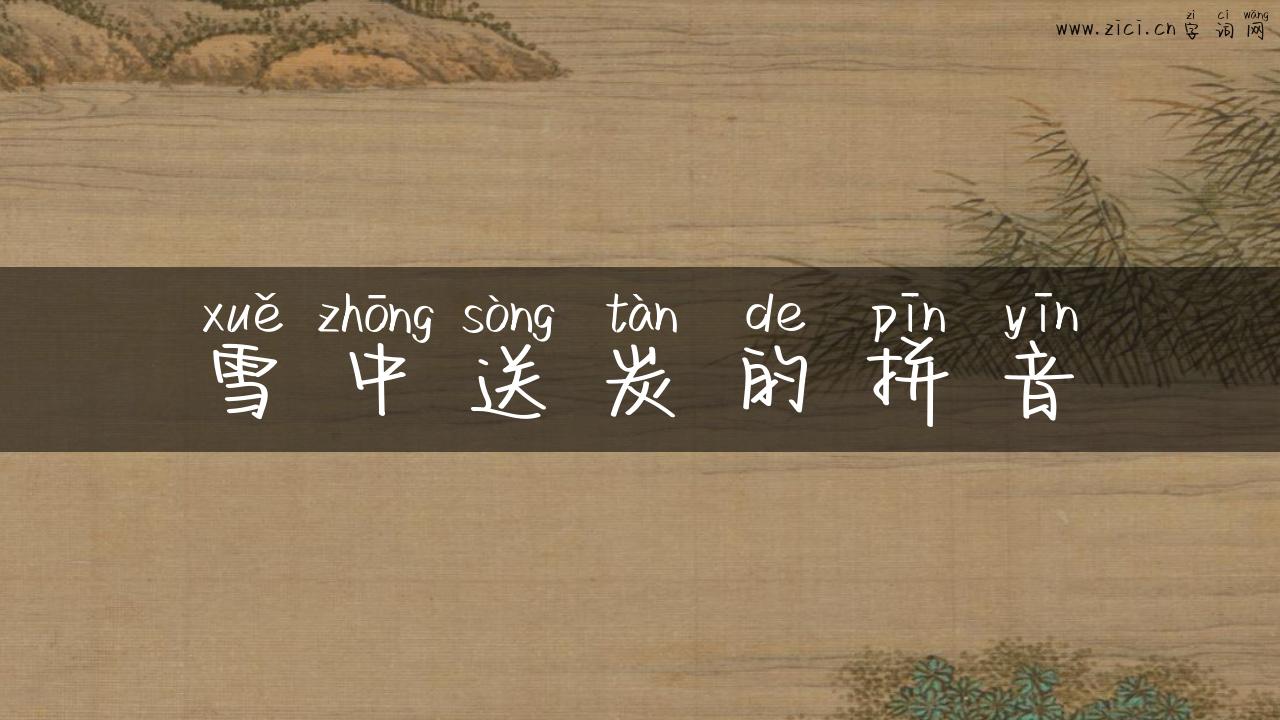 zì cí wǎng
www.zici.cn 字词网
xuě zhōng sòng tàn de pīn yīn
雪中送炭的拼音